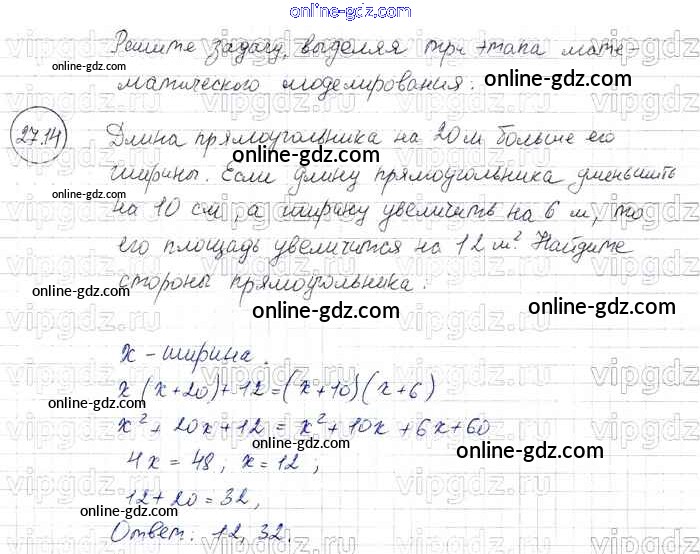 online-gdz.com
Решите задачу, выделяя три этапа мате-
матического моделирования.
27.14
Длина прямоугольника на 20 м больше его
ширины. Если длину прямоугольника уменьшить
на 10 см, а ширину увеличить на 6 м, то
его площадь увеличится на 12 м². Найдите
стороны прямоугольника.
x - ширина.
x(x+20)+12=(x+10)(x+6)
x²+20x+12 = x²+10x+6x+60
4x = 48, x = 12;
12+20=32,
Ответ: 12, 32.
online-gdz.com
online-gdz.com
online-gdz.com
online-gdz.com
online-gdz.com
online-gdz.com
online-gdz.com
online-gdz.com
online-gdz.com
online-gdz.com
online-gdz.com
online-gdz.com
vipgdz.ru